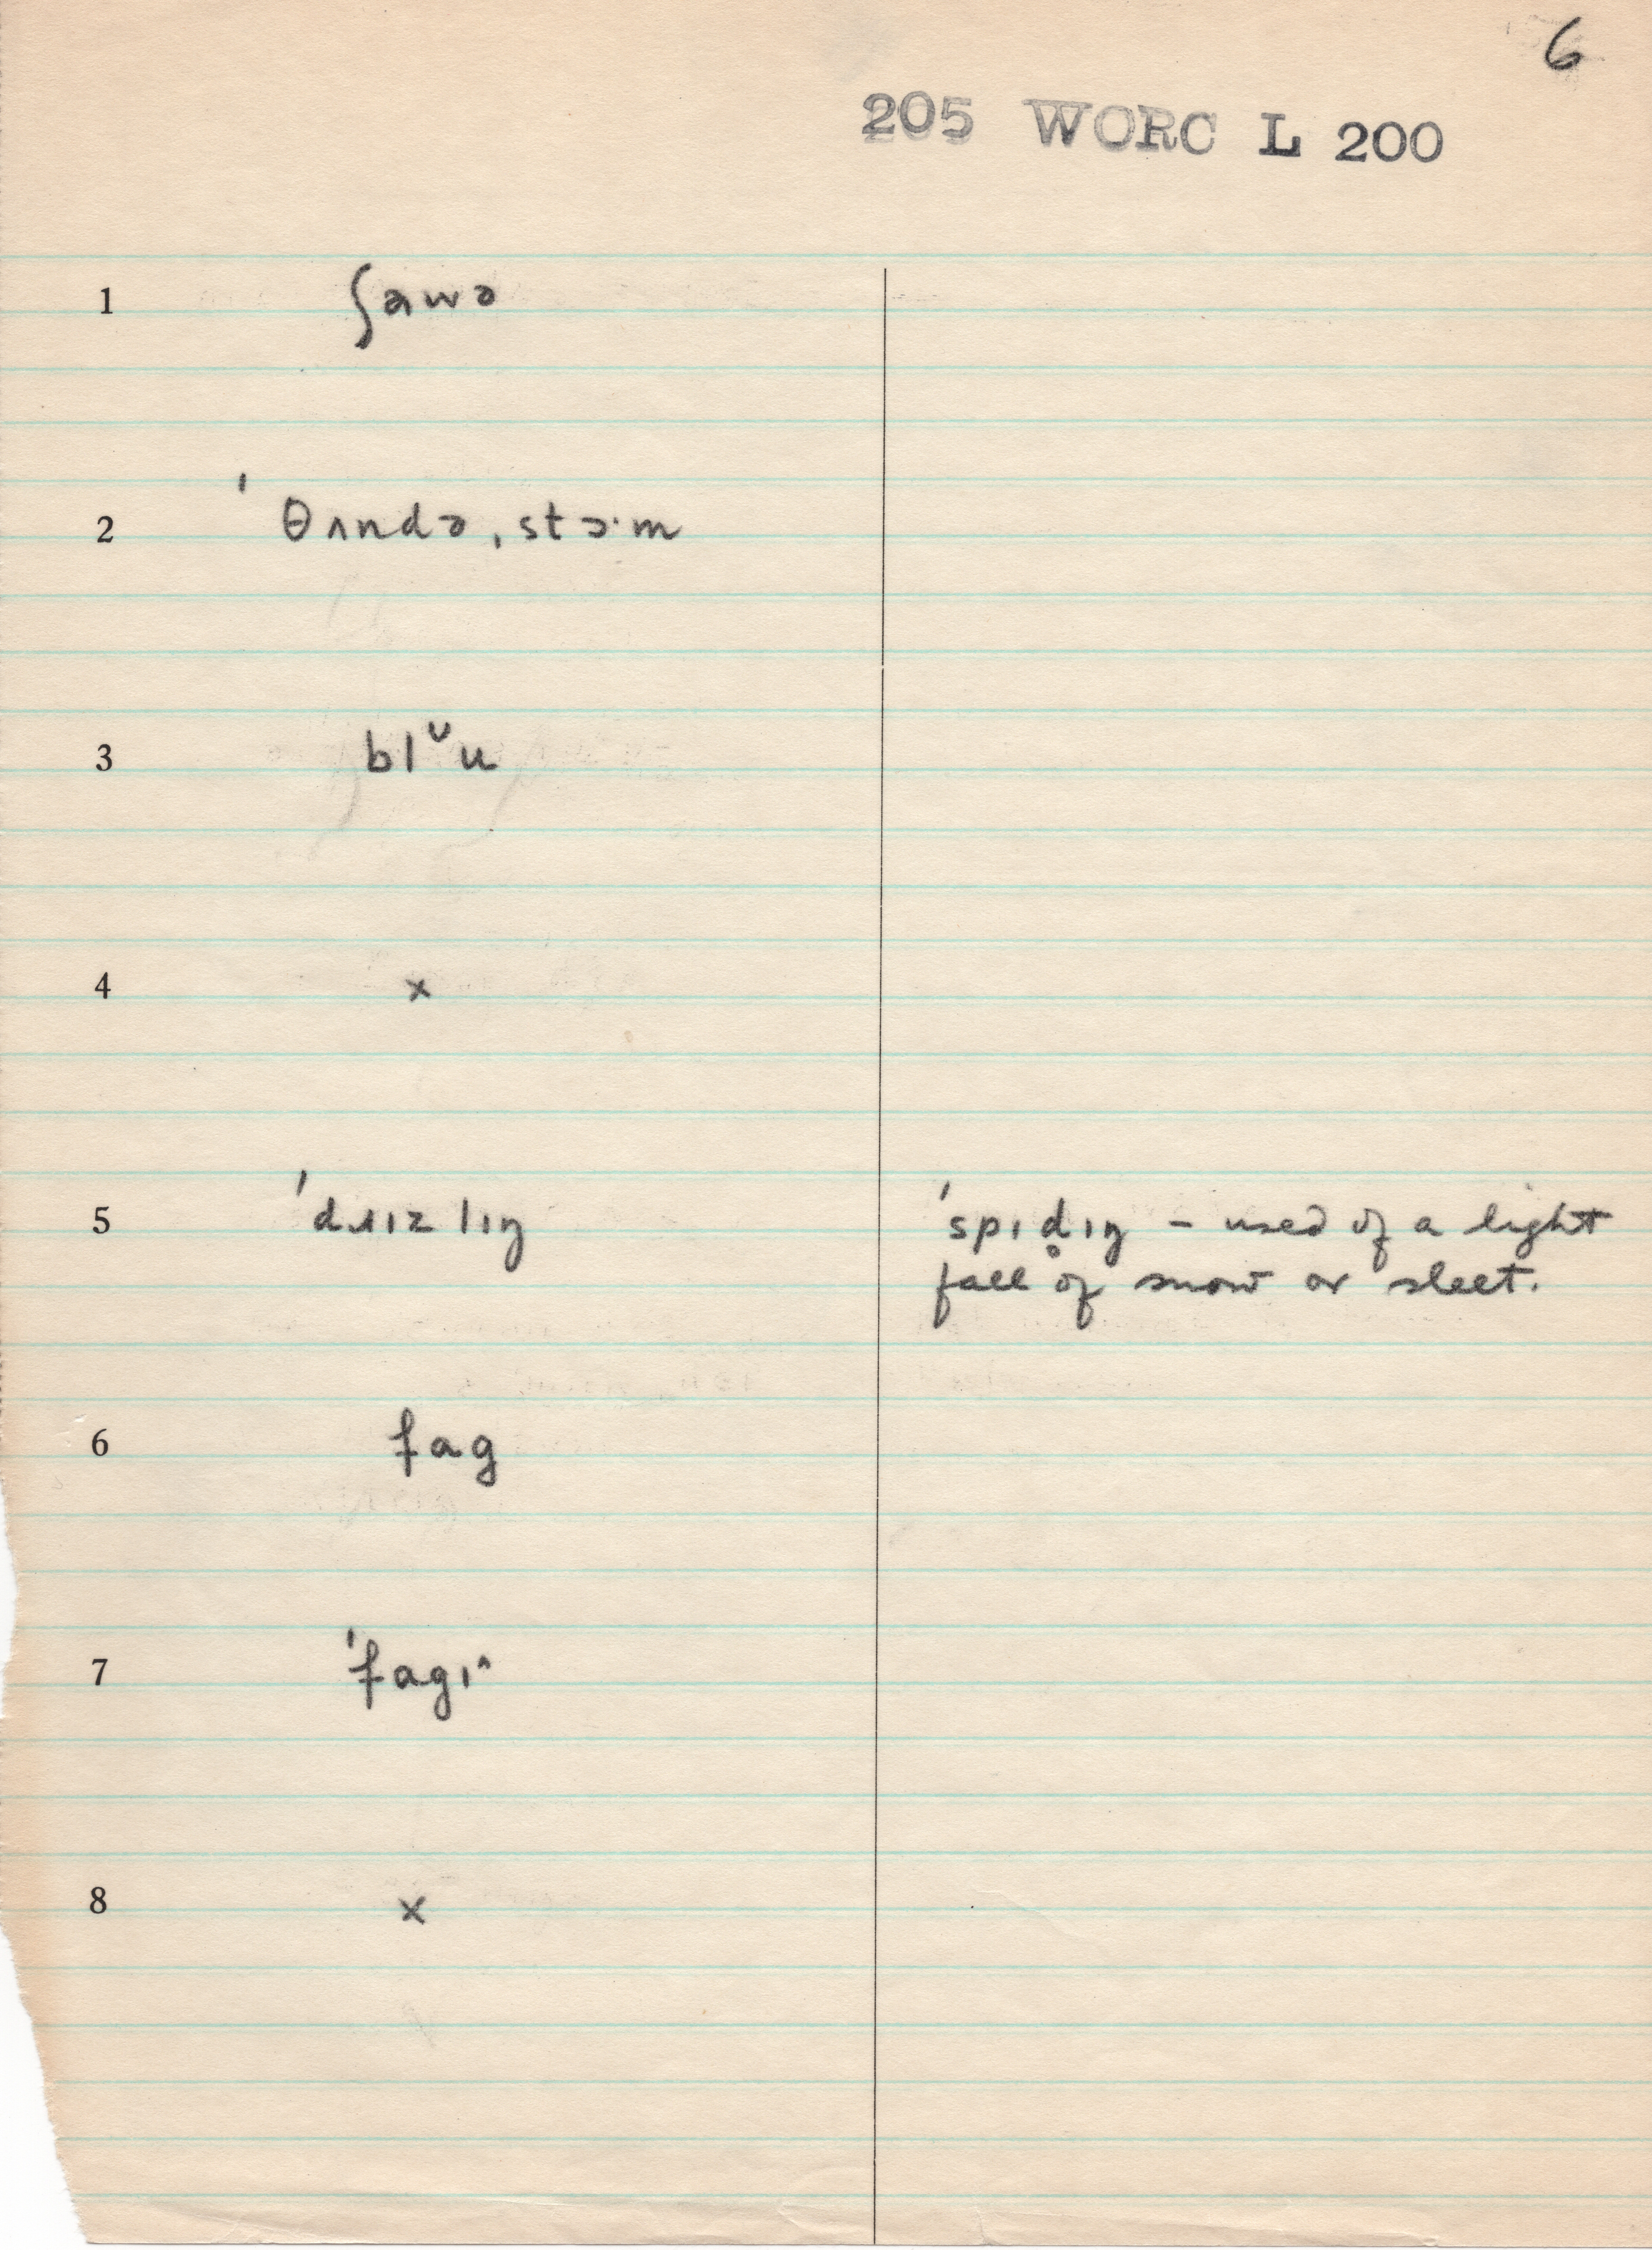 6
205 WORC L 200
1 ʃawə
2 ˈθʌndəˌstɔˑm
3 blᶹu
4 x
5 ˈdɹɪzlɪŋ ˈspɪd̥ɪŋ – used of a light
fall of snow or sleet.
6 fag
7 ˈfagɪ^
8 x